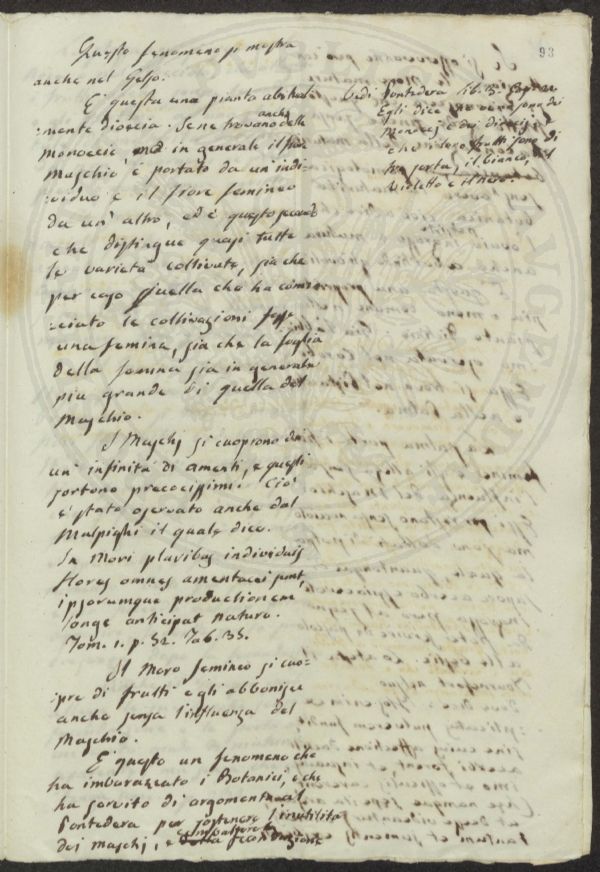 93
Questo fenomeno si mostra
anche nel Gelso.
E' questa una pianta
:mente dioecia. Se ne trovano anche delle
Monoecie, ma in generale il fior
Maschio è portato da un' indi-
:viduo e il fiore femineo
da un' altro, ed è questo
che distingue quasi tutte
le varietà coltivate, sia che
per caso quella che ha comin
:ciato le coltivazioni fosse
una femina, sia che la foglia
della femina sia in generale
più grande di quella del
Maschio.
I Maschj si cuoprono di
un' infinità di amenti, e questi
sortono precocissimi. Ciò
è stato osservato anche dal
Malpighi il quale dice.
In Mori pluribus individuis
flores omnes amentacei sunt,
ipsorumque productionem
longe anticipat natura.
Tom. 1. p. 52. Tab. 35.
Il Moro femineo si cuo-
:pre di frutti e gli abbonisce
anche senza l'influenza del
Maschio.
E' questo un fenomeno che
ha imbarazzato i Botanici, e che
ha servito di argomento al
Pontedera per sostenere l'inutilità
dei maschj, e della fecondazione
Vedi Pontedera lib. 3.
Egli dice che ve ne sono dei
Monoecj e dei dioecj
e che i loro frutti sono di
tre sorta, il bianco, il
violetto e il nero.